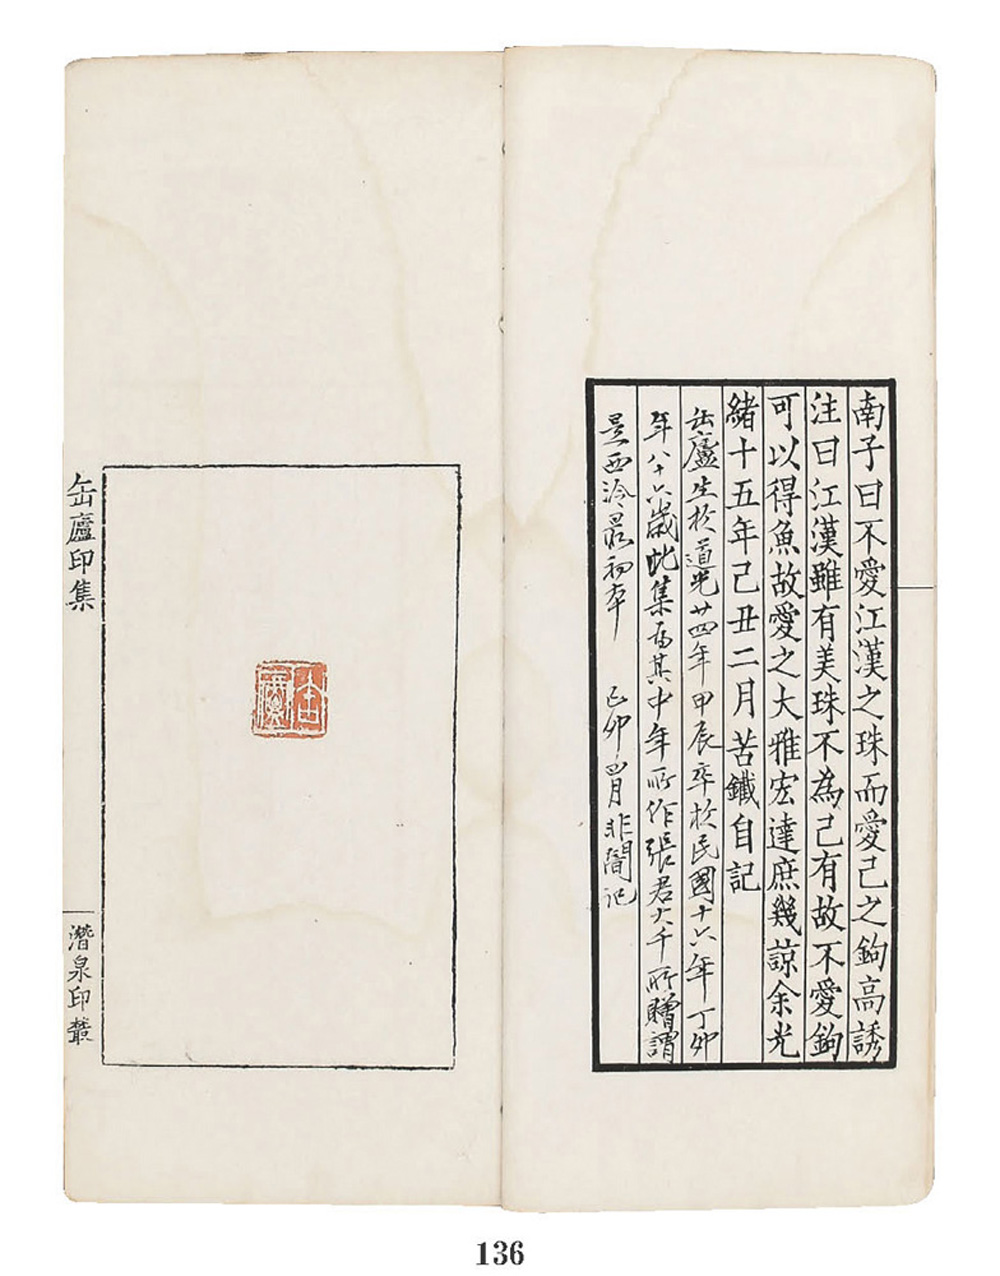 南子曰不愛江漢之珠而愛己之鉤高誘
注曰江漢雖有美珠不為己有故不愛鉤
可以得魚故愛之大雅宏達庶幾諒余光
緒十五年己丑二月苦鐵自記
缶廬生於道光廿四年甲辰卒於民國十六年丁卯
年八十六歲此集為其中年所作張君大千所贈謂
是西泠最初本 己卯四月非闇記
缶廬
缶廬印集
潛泉印叢
136